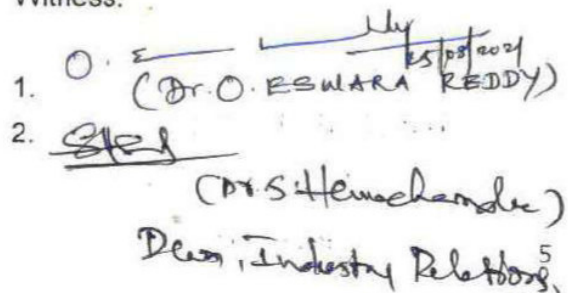 Witness:
1. O. E
25/03/2021
(Dr. O. ESWARA REDDY)
2.
(Dr. S. Hemachandra)
Dean, Industry Relations,
5